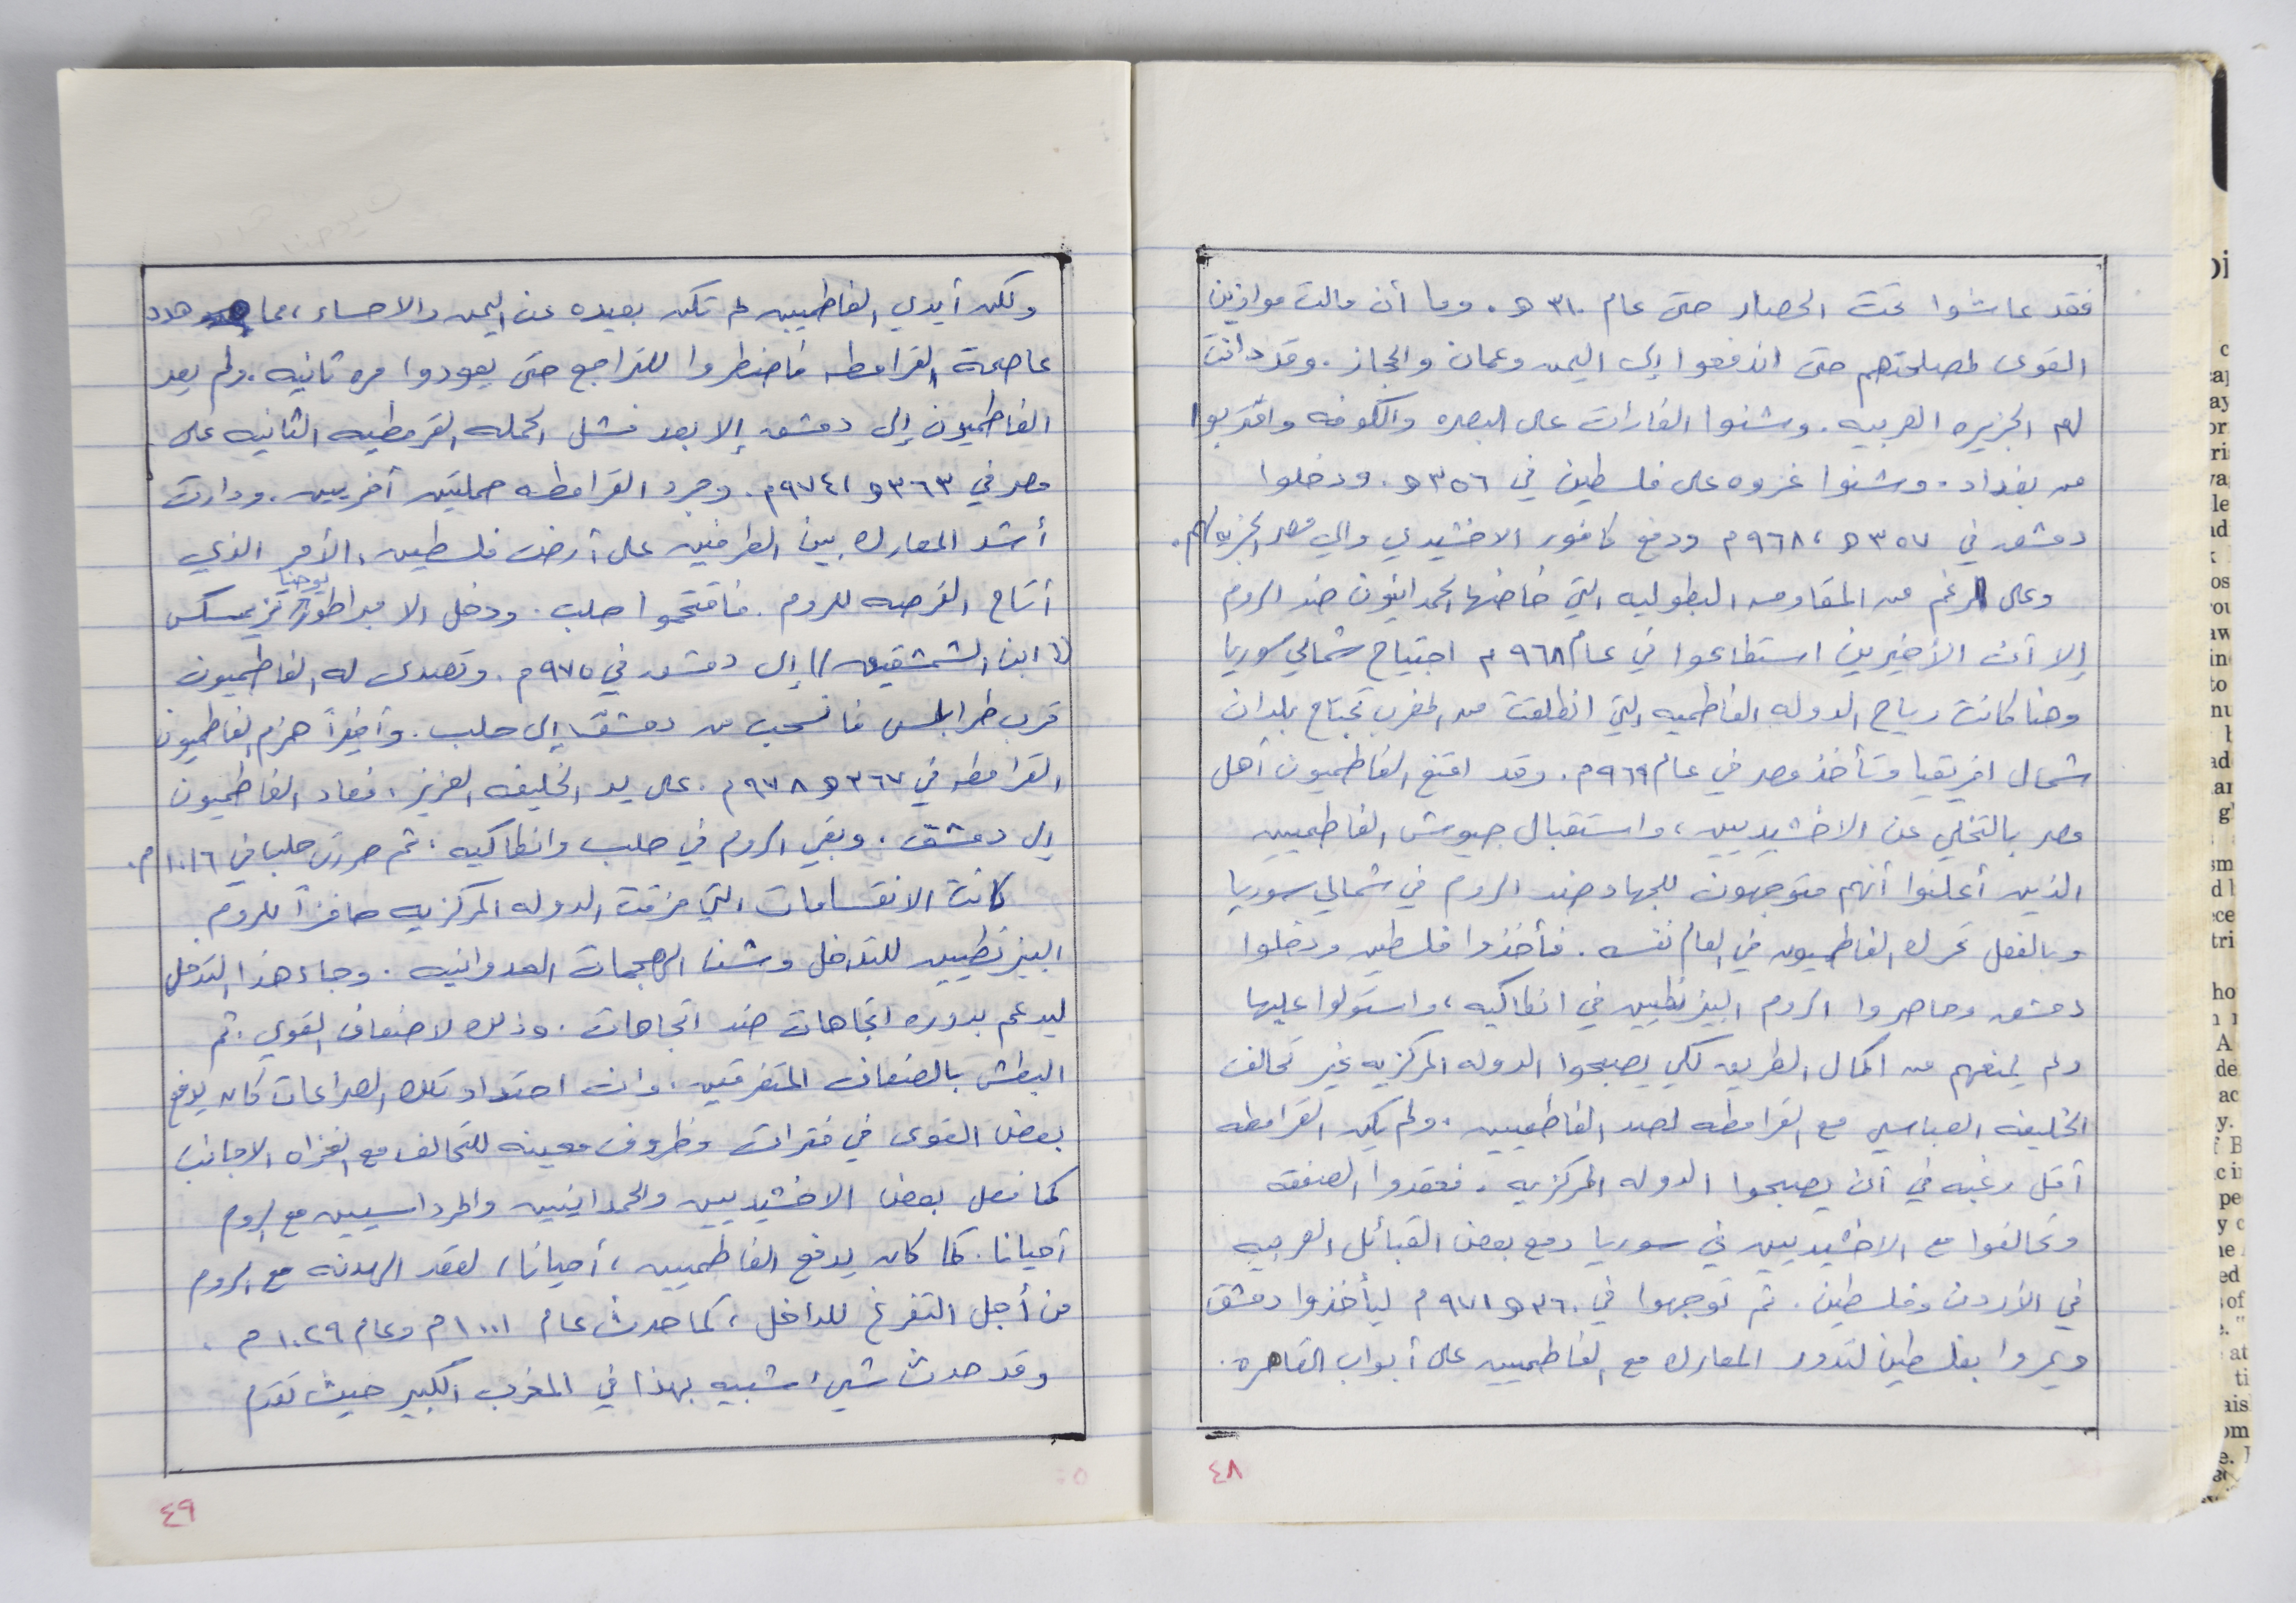 فقد عاشوا تحت الحصار حتى عام ٣١٠ هـ. وما أن مالت موازين
القوى لمصلحتهم حتى اندفعوا إلى اليمن وعمان والحجاز. وقد دانت
لهم الجزيره العربيه. وشنوا الغارات على البصره والكوفه واقتربوا
من بغداد. وشنوا غزوه على فلسطين في ٣٥٦ هـ. ودخلوا
دمشق في ٣٥٧ هـ، ٩٦٨ م ودفع كافور الاخشيدي والي مصر الجزيه لهم.
وعلى الرغم من المقاومه البطوليه التي خاضها الحمدانيون ضد الروم
إلا أن الأخيرين استطاعوا في عام ٩٦٨ م اجتياح شمالي سوريا
وهنا كانت رياح الدوله الفاطميه التي انطلقت من المغرب تجتاح بلدان
شمال افريقيا وتأخذ مصر في عام ٩٦٩ م. وقد اقنع الفاطميون أهل
مصر بالتخلي عن الاخشيديين، واستقبال جيوش الفاطميين
الذين أعلنوا أنهم متوجهون للجهاد ضد الروم في شمالي سوريا
وبالفعل تحرك الفاطميون في العام نفسه. فأخذوا فلسطين ودخلوا
دمشق وحاصروا الروم البيزنطيين في انطاكيه، واستولوا عليها
ولم يمنعهم من اكمال الطريق لكي يصبحوا الدوله المركزيه غير تحالف
الخليفه العباسي مع القرامطه لصد الفاطميين. ولم يكن القرامطه
أقل رغبه في أن يصبحوا الدوله المركزيه. فعقدوا الصفقه
وتحالفوا مع الاخشيديين في سوريا ومع بعض القبائل العربيه
في الأردن وفلسطين. ثم توجهوا في ٣٦٠ هـ ٩٧١ م ليأخذوا دمشق
ويمروا بفلسطين لتدور المعارك مع الفاطميين على أبواب القاهره.
٤٨
ولكن أيدي الفاطميين لم تكن بعيده عن اليمن والاحساء، مما هدد
عاصمة القرامطه فاضطروا للتراجع حتى يعودوا مره ثانيه. ولم يعد
الفاطميون إلى دمشق إلا بعد فشل الحمله القرمطيه الثانيه على
مصر في ٣٦٣ هـ، ٩٧٤ م. وجرد القرامطه حملتين أخريين. ودارت
أشد المعارك بين الطرفين على أرض فلسطين. الأمر الذي
أتاح الفرصه للروم. فاقتحموا حلب. ودخل الامبراطور يوحنا تزيمسكس
(( ابن الشمشقيق )) إلى دمشق في ٩٧٥ م. وتصدى له الفاطميون
قرب طرابلس فانسحب من دمشق إلى حلب. وأخيراً هزم الفاطميون
القرامطه في ٣٦٧ هـ ٩٧٨ م. على يد الخليفه العزيز. فعاد الفاطميون
إلى دمشق. وبقي الروم في حلب وانطاكيه. ثم حررت حلب في ١٠١٦ م.
كانت الانقسامات التي مزقت الدوله المركزيه حافزاً للروم
البيزنطيين للتدخل وشن الهجمات العدوانيه. وجاء هذا التدخل
ليدعم بدوره اتجاهات ضد اتجاهات. وذلك لاضعاف القوي. ثم
البطش بالضعاف المتفرقين. وان احتداد تلك الصراعات كان يدفع
بعض القوى في فترات وظروف معينه للتحالف مع الغزاه الاجانب
كما فعل بعض الاخشيديين والحمدانيين والمرداسيين مع الروم
أحيانا. كما كان يدفع الفاطميين، أحيانا، لعقد الهدنه مع الروم
من أجل التفرغ للداخل، كما حدث عام ١٠٠١ م وعام ١٠٢٩ م.
وقد حدث شيء شبيه بهذا في المغرب الكبير حيث تقدم
٤٩